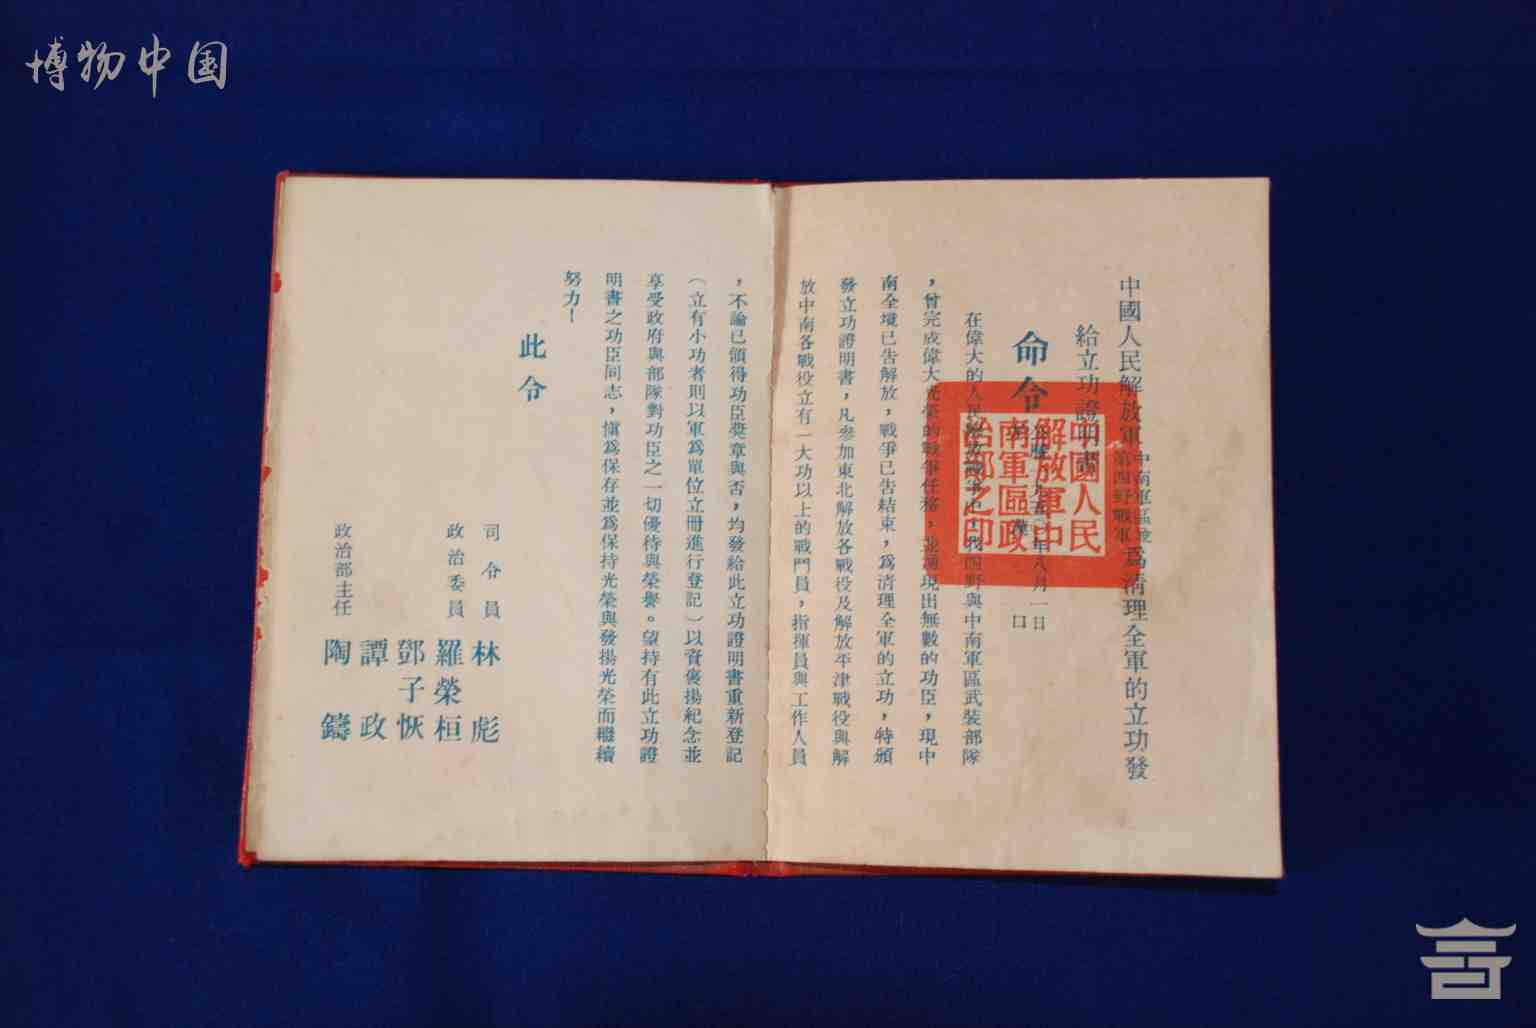 博物中国
中國人民解放軍中南軍區兼第四野戰軍爲清理全軍的立功發
給立功證明書
命令
公曆一九五〇年八月一日
在偉大的人民解放戰爭中,我四野與中南軍區武裝部隊
,曾完成偉大光榮的戰爭任務,並湧現出無數的功臣,現中
南全境已告解放,戰爭已告結束,爲清理全軍的立功,特頒
發立功證明書,凡參加東北解放各戰役及解放平津戰役與解
放中南各戰役立有一大功以上的戰鬥員,指揮員與工作人員
,不論已領得功臣獎章與否,均發給此立功證明書重新登記
(立有小功者則以軍爲單位立冊進行登記)以資褒揚紀念並
享受政府與部隊對功臣之一切優待與榮譽。望持有此立功證
明書之功臣同志,慎爲保存並爲保持光榮與發揚光榮而繼續
努力!
此令
司令員 林彪
政治委員 羅榮桓
鄧子恢
譚政
政治部主任 陶鑄
中國人民
解放軍中
南軍區政
治部之印